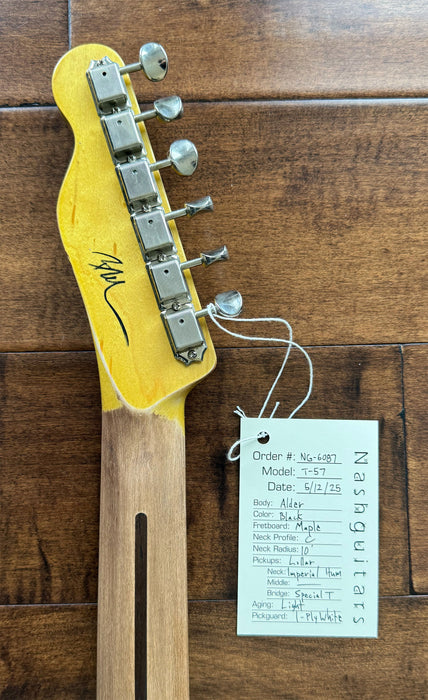 Order #: NG-6087
Model: T-57
Date: 5/12/25
Body: Alder
Color: Black
Fretboard: Maple
Neck Profile: C
Neck Radius: 10"
Pickups: Lollar
Neck: Imperial Hum
Middle:
Bridge: Special T
Aging: Light
Pickguard: 1-Ply White
Nashguitars